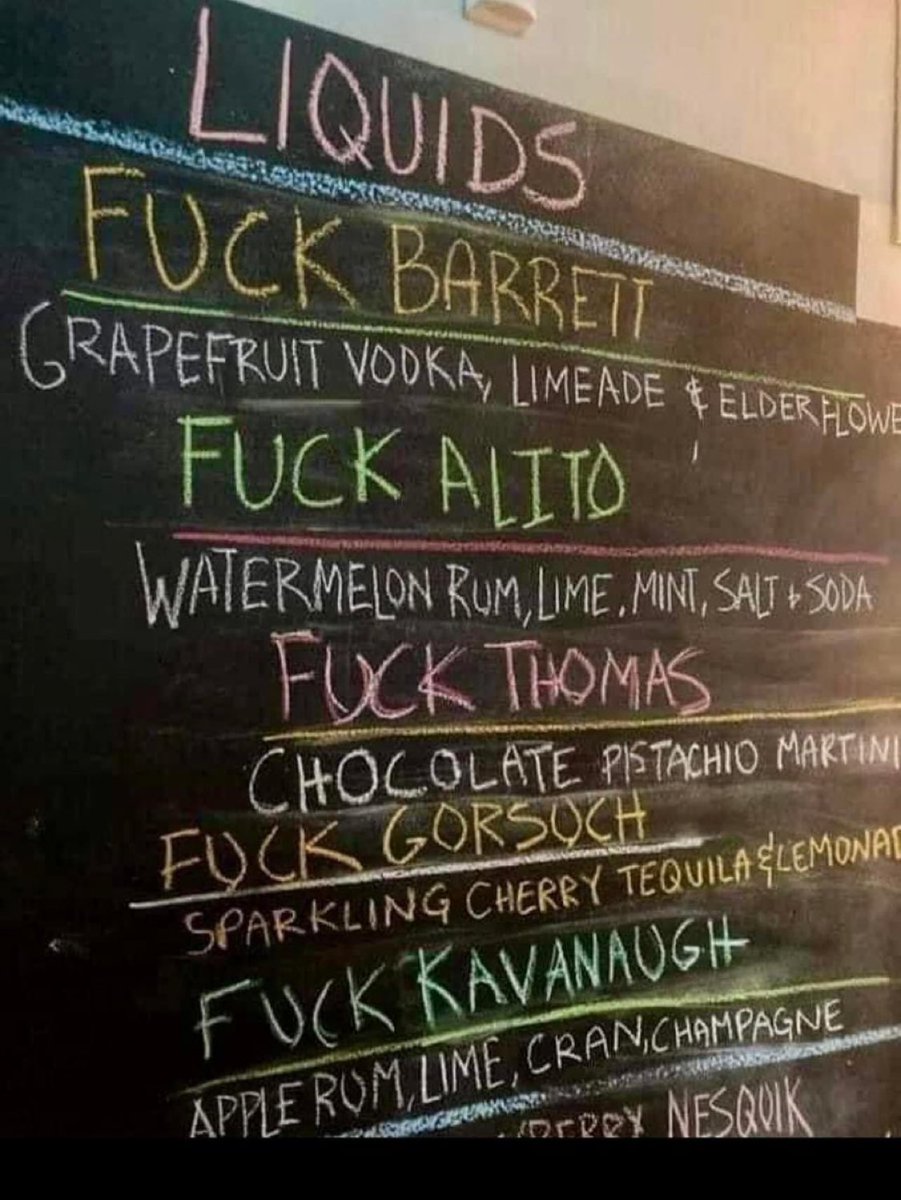 LIQUIDS
FUCK BARRETT
GRAPEFRUIT VODKA, LIMEADE & ELDERFLOWE
FUCK ALITO
WATERMELON RUM, LIME, MINT, SALT + SODA
FUCK THOMAS
CHOCOLATE PISTACHIO MARTINI
FUCK GORSUCH
SPARKLING CHERRY TEQUILA & LEMONAD
FUCK KAVANAUGH
APPLE RUM, LIME, CRAN, CHAMPAGNE
NESQUIK